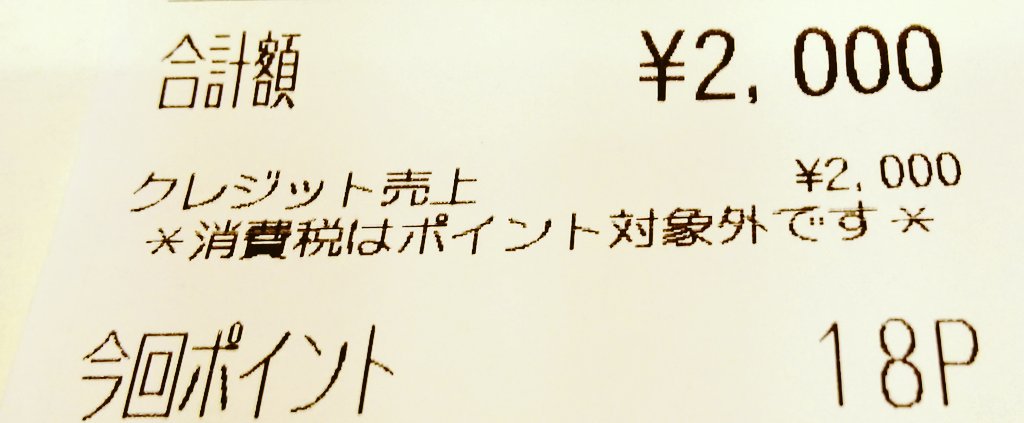 合計額 ¥2,000
クレジット売上 ¥2,000
＊消費税はポイント対象外です＊
今回ポイント 18P